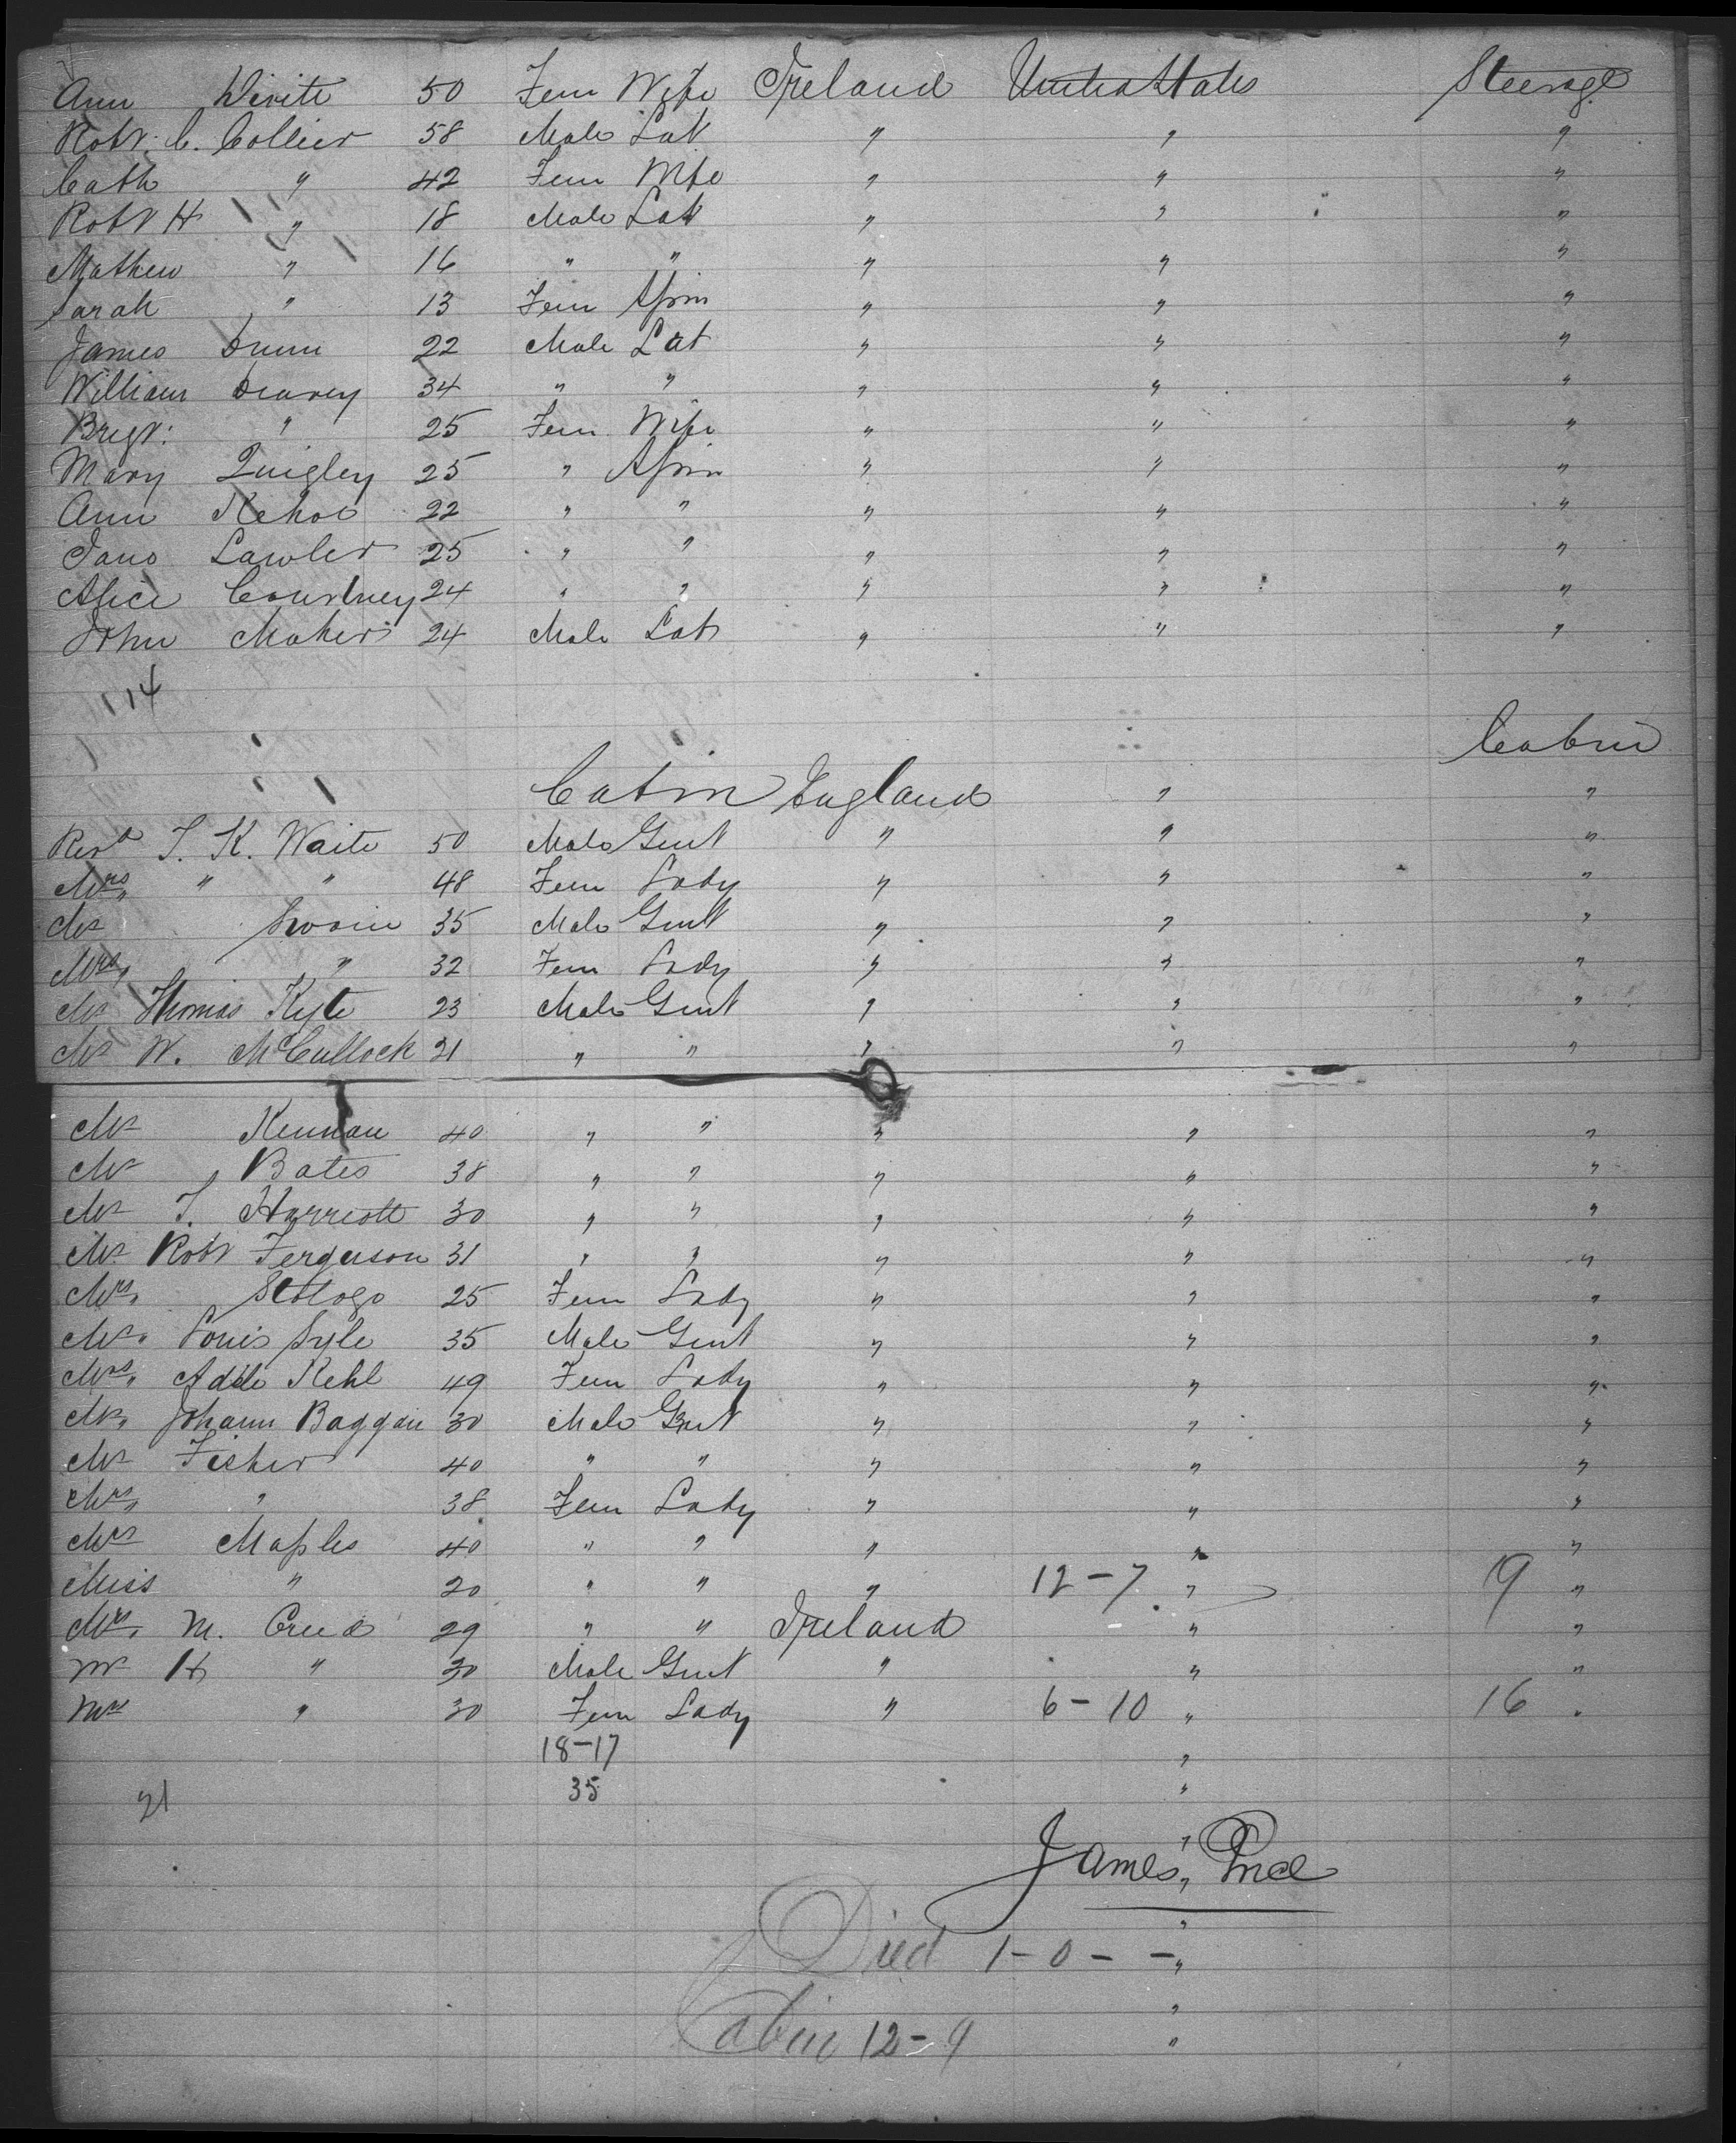 Ann 50 Fem Wife Ireland United States Steerage
Robt. C. Collier 58 Male Lab " " "
Cath " 42 Fem Wife " " "
Robt H " 18 Male Lab " " "
Mathew " 16 " " " " "
Sarah " 13 Fem Spin " " "
James Dunn 22 Male Lab " " "
William 34 " " " " "
Brigt: " 25 Fem Wife " " "
Mary Quigley 25 " Spin " " "
Ann Kehoe 22 " " " " "
Jane Lawler 25 " " " " "
Alice Courtney 24 " " " " "
John Maher 24 Male Lab " " "
14
Cabin
Cabin England " "
Revd T. K. Waite 50 Male Gent " " "
Mrs " " 48 Fem Lady " " "
Mr Swain 35 Male Gent " " "
Mrs " 32 Fem Lady " " "
Mr Thomas Kyte 23 Male Gent " " "
Mr W. McCullock 21 " " " " "
Mr Kennan 40 " " " " "
Mr Bates 38 " " " " "
Mr T. Harriott 30 " " " " "
Mr. Robt Ferguson 31 " " " " "
Mrs. 25 Fem Lady " " "
Mr. Louis Syle 35 Male Gent " " "
Mrs. Adele Kehl 49 Fem Lady " " "
Mr. Johann Baggan 30 Male Gent " " "
Mr Fisher 40 " " " " "
Mrs. " 38 Fem Lady " " "
Mrs Maples 40 " " " " "
Miss " 20 " " " 12-7 " 19 "
Mrs. M. Creed 29 " " Ireland " "
Mr H " 30 Male Gent " " "
Mrs " 30 Fem Lady " 6-10 " 16 "
18-17 "
35 "
21
"
James Price
"
Died 1-0- - "
"
Cabin 12-9
"